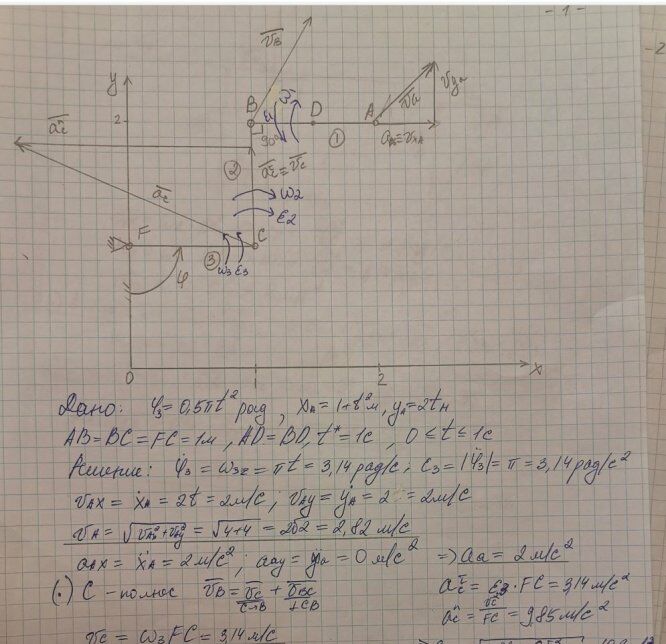 - 1 -
- 2
y
v̅B
B
D
A
v̅a
vya
2
①
aAx=vxA
90°
②
a̅ⁿc
a̅c
a̅τc=v̅c
ω2
ε2
F
C
③
ω3 ε3
φ
0
1
2
x
Дано: φ3 = 0,5πt² рад, xA = 1+t² м, yA = 2t м
AB=BC=FC=1м, AD=BD, t* = 1с, 0 ≤ t ≤ 1с
Решение: φ̇3 = ω3z = πt = 3,14 рад/с; ε3 = |φ̈3| = π = 3,14 рад/с²
vAX = ẋA = 2t = 2м/с; vAy = ẏA = 2 = 2м/с
vA = √vAx²+vAy² = √4+4 = 2√2 = 2,82 м/с
aAX = ẍA = 2 м/с²; aAy = ÿA = 0 м/с² => aa = 2 м/с²
(·) C - полюс v̅B = v̅C + v̅BC
C→B ⊥CB
aτc = ε3·FC = 3,14 м/с²
aⁿc = vc²/FC = 9,85 м/с²
vC = ω3 FC = 3,14 м/с